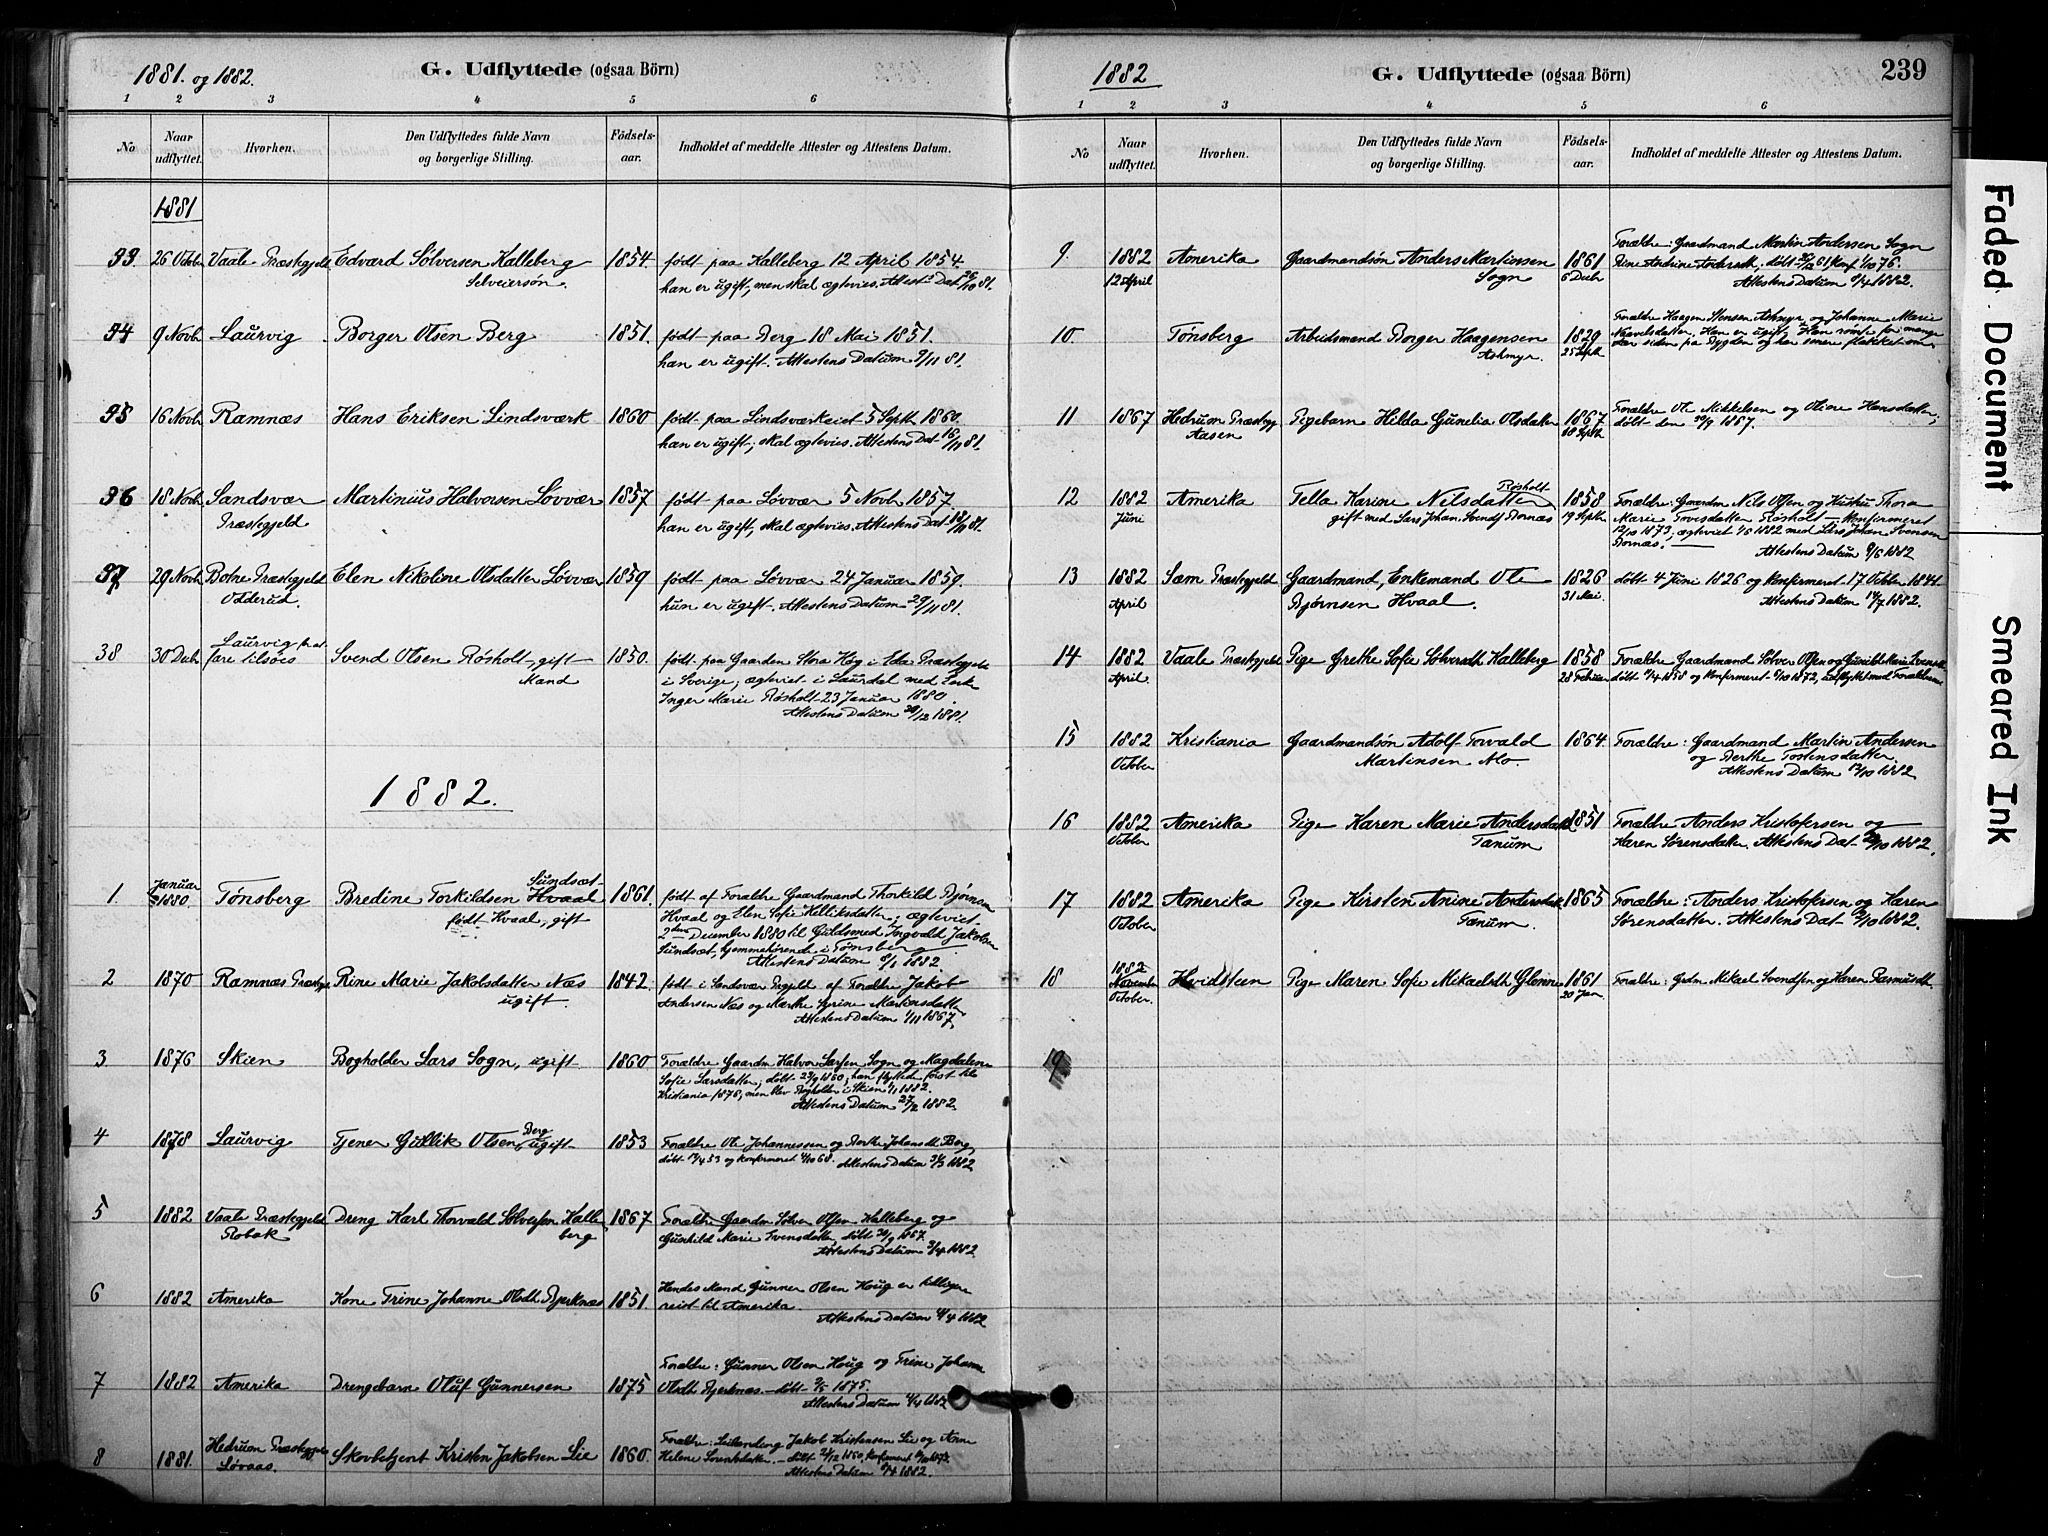 1881. og 1882.
G. Udflyttede (ogsaa Börn)
1 2 3 4 5 6
No
Naar udflyttet.
Hvorhen.
Den Udflyttedes fulde Navn og borgerlige Stilling.
Födsels-aar.
Indholdet af meddelte Attester og Attestens Datum.
1881
33. 26 Octob Vaale Præstegjeld Edvard Sølversen Kalleberg 1854. født paa Kalleberg 12 April 1854.
Selveiersøn. han er ugift, men skal ægtevies. Attest. Dat. 26/10 81.
34 9 Novb. Laurvig Borger Olsen Berg 1851. født paa Berg 18 Mai 1851.
han er ugift. Attestens Datum 9/11 81.
35 16 Novb. Ramnæs Hans Eriksen Lindsværk 1860 født paa Lindsværkeiet 5 Septb. 1860.
han er ugift, skal ægtevies. Attestens Dat. 16/11 81.
36 18 Novb. Sandsvær Martinius Halvorsen Løvvær 1857 født paa Løvvær 5 Novb. 1857
Præstegjeld han er ugift, skal ægtevies. Attestens Dat. 18/11 81.
37 29 Novb. Botne Præstegjeld Elen Nikoline Olsdatter Løvvær 1859 født paa Løvvær 24 Januar 1859.
Odderud. hun er ugift. Attestens Datum 29/11 81.
38 30 Decb. Laurvig for at
fare tilsøes Svend Olsen Røsholt, gift 1850. født paa Gaarden Stora Høg i Eda Præstegjeld
Mand i Sverige; ægteviet i Laurdal med
Inger Marie Røsholt 23 Januar 1880.
Attestens Datum 30/12 1881.
1882.
1 Januar 1880 Tønsberg Bredine Torkildsen Hvaal Sundsæt 1861. født af Forældre Gaardmand Thorkild Bjørnsen
født Hvaal, gift Hvaal og Elen Sofie Kelliksdatter; ægteviet
2den December 1880 til Guldsmed Ingvald Jakobsen
Sundsæt, hjemmehørende i Tønsberg
Attestens Datum 6/1 1882
2 1870 Ramnæs Præstegj. Rine Marie Jakobsdatter Næs 1842. født i Sandsvær Prgjeld af Forældre Jakob
ugift. Andersen Næs og Marthe Martinsdatter
Attestens Datum 1/11 1867.
3 1876 Skien Bogholder Lars Sogn, ugift 1860 Forældre Gaardm Halvor Larsen Sogn og Magdalene
Sofie Larsdatter; døbt 23/9 1860; han flyttede først til
Kristiania 1876, men blev Bogholder i Skien 1/1 1882.
Attestens Datum 27/2 1882.
4 1878 Laurvig Tjener Gullik Olsen Berg, ugift 1853 Forældre Ole Johannessen og Berthe Johansdt. Berg,
døbt 17/4 53 og konfirmeret 4/10 68. Attestens Datum 31/3 1882
5 1882 Vaale Præstegjeld Dreng Karl Thorvald Sølversen Kalle 1867 Forældre Gaardm Sølver Olsen Kalleberg og
berg Gunhild Marie Svensdatter, døbt 29/9 1867.
Attestens Datum 3/4 1882
6 1882 Amerika Kone Trine Johanne Olsdtr Bjerknæs 1851. Hendes Mand Gunner Olsen Houg er tidligere
reist til Amerika.
Attestens Datum 4/4 1882
7 1882 Amerika Drengebarn Oluf Gunnersen 1875 Forældre: Gunner Olsen Houg og Trine Johanne
Olsdtr Bjerknæs – døbt 2/5 1875.
Attestens Datum 4/4 1882
8 1881. Hedrum Præstegjeld Skovbetjent Kristen Jakobsen Lie 1860. Forældre: Jakob Kristensen Lie og Anne
Løvaas. Helene
Attestens Datum 6/4 1882.
1882
G. Udflyttede (ogsaa Börn)
239
1 2 3 4 5 6
No
Naar udflyttet.
Hvorhen.
Den Udflyttedes fulde Navn og borgerlige Stilling.
Födsels-aar.
Indholdet af meddelte Attester og Attestens Datum.
9. 1882 Amerika Gaardmandsøn Anders Martinsen 1861 Forældre: Gaardmand Martin Andersen Sogn
12 April Sogn 6 Decbr Rine Andrine Andersdt.
Attestens Datum 8/4 1882.
10. Tønsberg Arbeidsmand Borger Haagensen 1829 Forældre Haagen Askmyr og Johanne Marie
Askmyr. 25 Septb Han er ugift. Han rømte for mange
Aar siden fra Bygden og har senere flakket om.
11 1867 Hedrum Præstegj Pigebarn Hilda Gunelia Olsdatter 1867 Forældre Ole Mikkelsen og Oline Hansdatter,
Aasen døbt den 29/9 1867.
12 1882 Amerika Tella Karine Nilsdatter Røsholt 1858 Forældre: Gaardm Nils Olsen og Hustru Thora
Juni gift med Lars Johan Svends. Bornæs 19 Septb Marie Tovesdatter Røsholt – konfirmeret
12/10 1873; ægteviet 1882 med Lars Johan Svensen
Bornæs. – Attestens Datum 9/6 1882
13 1882 Sæm Præstegjeld Gaardmand, Enkemand Ole 1826 døbt 4 Juni 1826 og konfirmeret 17 Octbr 1841
April Bjørnsen Hvaal. 31 Mai. Attestens Datum 14/7 1882.
14 1882 Vaale Præstegjeld Pige Grethe Sofie Sølversdt Kalleberg 1858 Forældre Gaardmand Sølver Olsen og Gunild Marie Svensdt
April 28 Februar døbt 5/4 1858 og konfirmeret 6/10 1872, udflyttet med Forældrene
15 1882 Kristiania Gaardmandsøn Adolf Torvald 1864. Forældre: Gaardmand Martin Andersen
October Martinsen Mo. og Berthe Tostensdatter.
Attestens Datum 12/10 1882
16 1882 Amerika Pige Karen Marie Andersdatter 1851 Forældre Anders Kristofersen og
October Tanum Karen Sørensdatter. Attestens Dat. /10 1882.
17 1882 Amerika Pige Kirsten Anine Andersdatt 1865 Forældre: Anders Kristofersen og Karen
October Tanum. Sørensdatter. Attestens Dat. /10 1882.
18 1882 November October. Hvidsteen Pige Maren Sofie Mikaelsdt Glenne 1861 Forældre: Grdm Mikael Svendsen og Karen Rasmusdt.
20 Jan
19
Faded Document
Smeared Ink